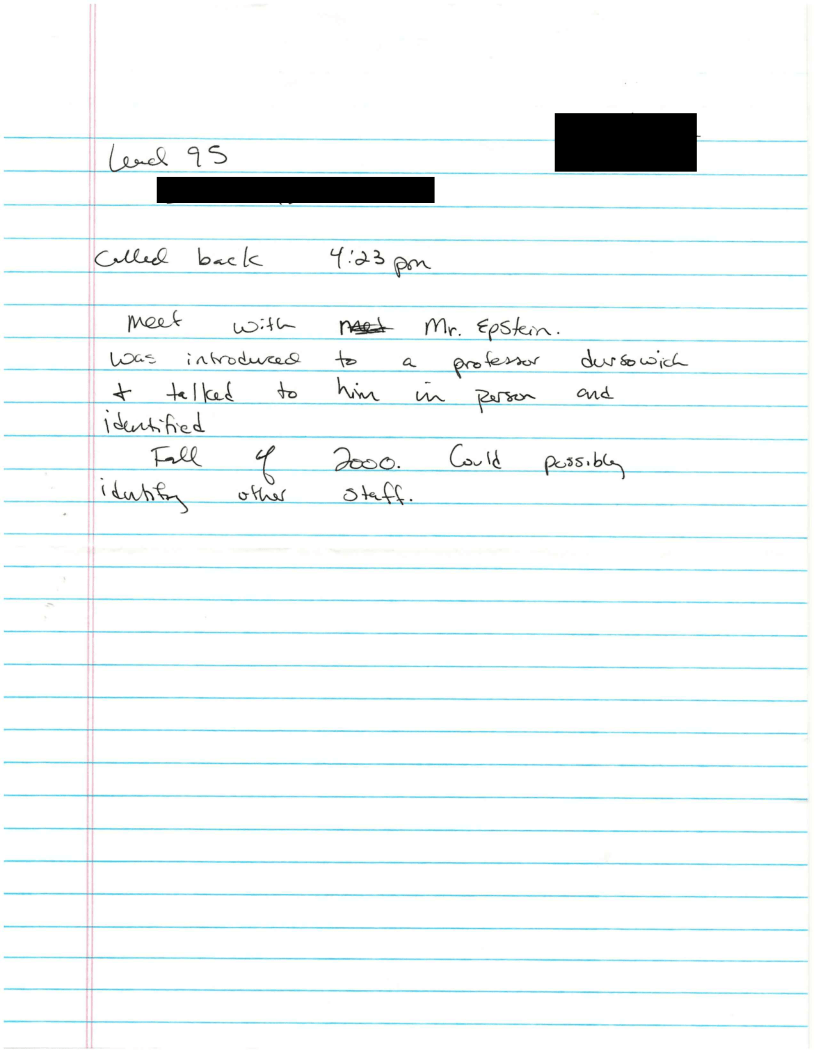 Lead 95
Called back 4:23 pm
meet with Mr. Epstein.
was introduced to a professor dursowich
+ talked to him in person and
identified
Fall of 2000. Could possibly
identify other staff.